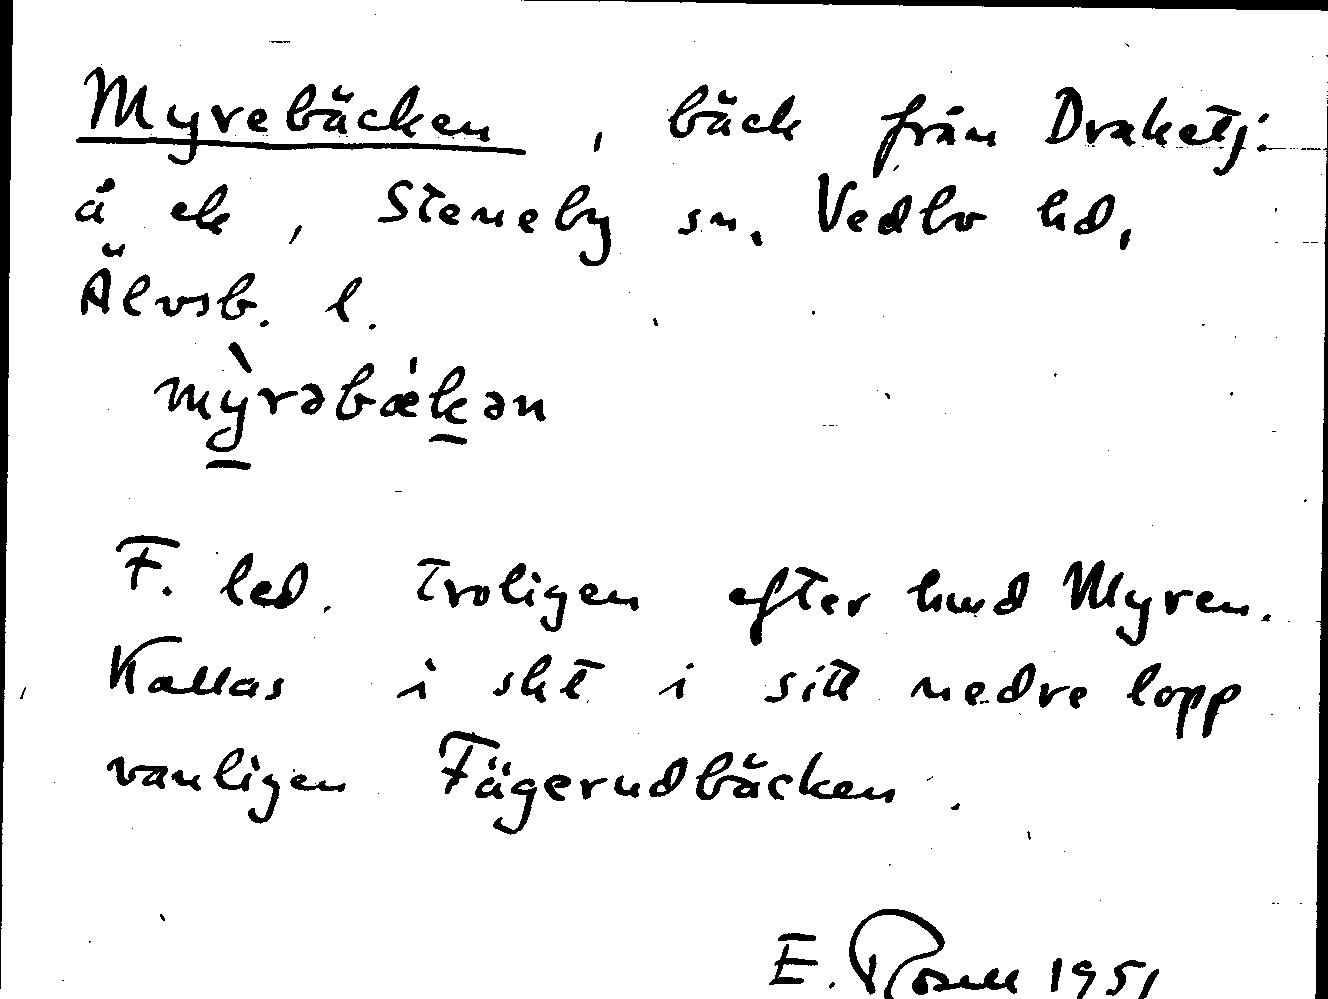 Myrebäcken, bäck från Draketj:
å ek, Steneby sn. Vedbo hd,
Älvsb. l.
mỳrəbǽkən
F. led. troligen efter hmd Myren.
Kallas i skt i sitt nedre lopp
vanligen Fägerudbäcken.
E. Rosell 1951